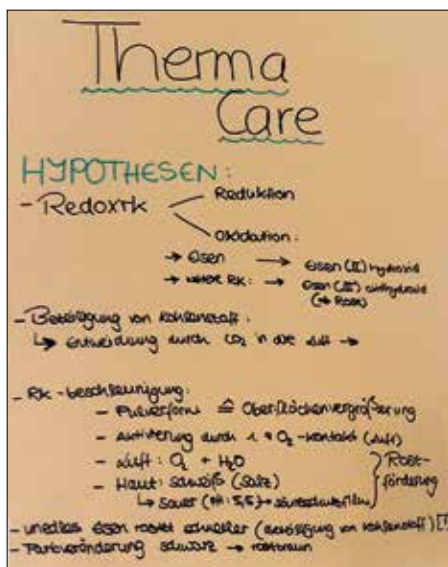 Therma
Care
HYPOTHESEN:
- Redoxrk
Reduktion
Oxidation:
→ Eisen → Eisen (II) hydroxid
→ RK: → Eisen (III)
(→ Rost)
- Beteiligung von Kohlenstoff:
↳ Entweichung durch CO₂ in die Luft →
- RK - beschleunigung:
- Pulverform ≙ Oberflächenvergrößerung
- Aktivierung durch O₂-kontakt (Luft)
- Luft: O₂ + H₂O
- Haut: Schweiß (Salz)
Rost-
förderung
↳ Sauer (pH: 5,5) → Säureschutzfilm
- unedles Eisen rostet schneller (Beteiligung von Kohlenstoff)
- Farbveränderung schwarz → rostbraun